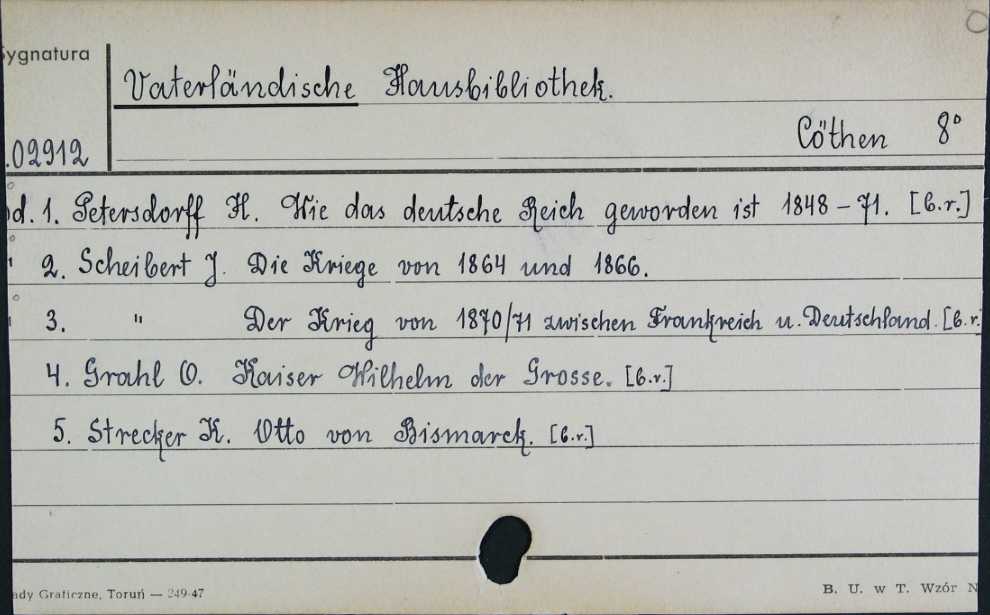 Sygnatura
Vaterländische Hausbibliothek.
Cöthen 8°
.02912
d. 1. Petersdorff H. Wie das deutsche Reich geworden ist 1848 – 71. [b.r.]
2. Scheibert J. Die Kriege von 1864 und 1866.
3. " Der Krieg von 1870/71 zwischen Frankreich u. Deutschland. [b.r.
4. Grahl O. Kaiser Wilhelm der Grosse. [b.r.]
5. Strecker K. Otto von Bismarck. [b.r.]
ady Graficzne, Toruń — 249-47
B. U. w T. Wzór N